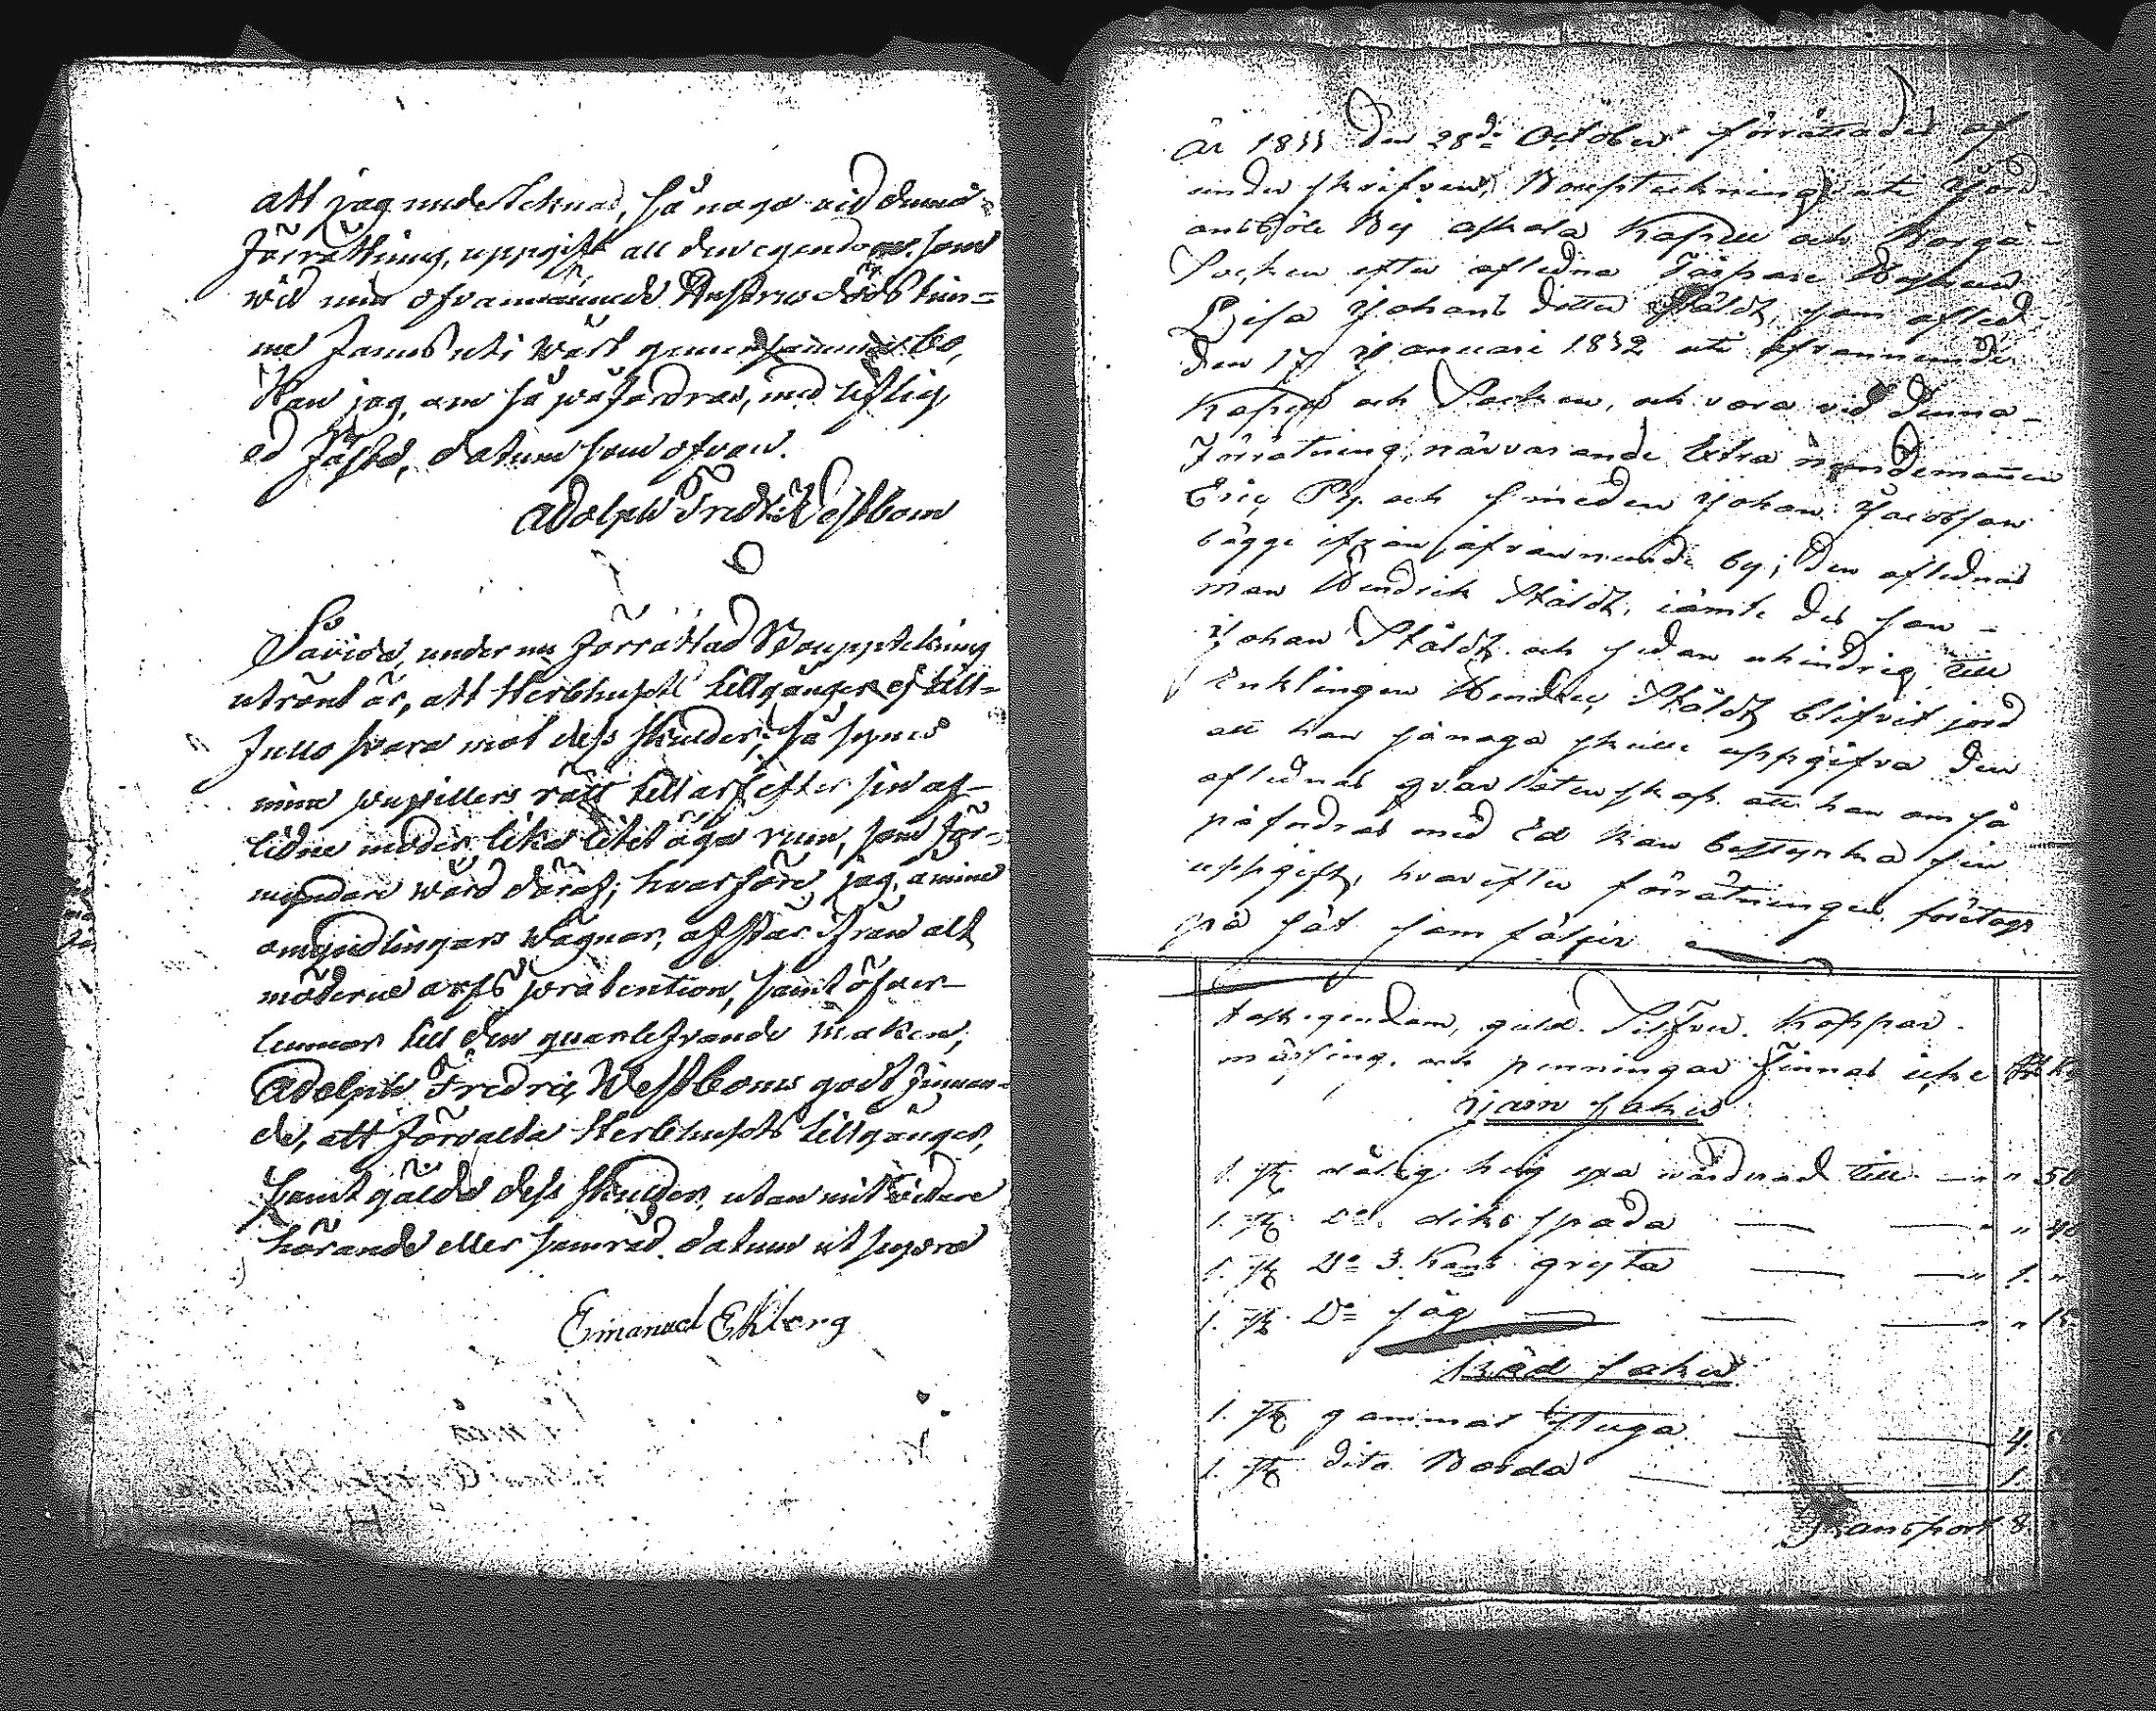 att jag undertecknad, så noga vid denna
förrättning, uppgift all den egendom, som
vid min ofvannämnde Hustrus dödstim-
me fanns uti wårt gemensamma bo,
Kan jag, om så påfordras, med liflig
ed fästa, datum som ofvan.
Adolph Fredr: Westbom
Såvida, under nu förrättad Bouppteckning
utrönt är, att sterbhusets tillgångar ej till-
fullo svara mot dess skulder, så synes
mine pupillers rätt till arf efter sin af-
lidne moder lika litet äga rum, som för-
myndare wård däraf; hvarföre jag, å mine
omyndlingars wägnar, afstår ifrån allt
möderne arfs prætention, samt öfver-
lemnar till den quarlefvande maken,
Adolph Fredric Westboms godt finnan-
de, att förvalta sterbhusets tillgångar,
samt gälda dess skulder, utan mit widare
hörande eller samråd. datum ut supra
Emanuel Ekberg
År 1833 den 28de October förrättades af
under skrifven, Bouptekning uti
By Askola Kapell och Borgå
Socken efter aflidna Hustrun
Lisa Johans dotter Ståldt, som afled
den 17 Januari 1832 uti ofvannemde
Kapell och Socken, och voro vid denna
Förrätning närvarande Extra nämdemannen
Eric Py. och smeden Johan Jacobsson
bägge ifrån ofvannemde by; den aflednas
man Hendrik Ståldt, jämte des son
Johan Ståldt och sedan
Enklingen Hendric Ståldt blifvit
att han så noga skulle uppgifva den
aflednas qvarlåtenskap att han om så
påfordras med Ed kan bestyrka sin
uppgift, hvarefter förrätningen företogs
på sät som följer
guld. Silfver. Koppar.
mässing. och penningar finnas icke
Järn saker
1. st. yxa wärderad till " 50
1. st. Do. dikes spada " 40
1. st. Do 3. Kans gryta 1. "
1. st. Do såg " 15
Träd saker
1. st gammal stuga 4.
1. st dito Boda 1.
Transport 8.